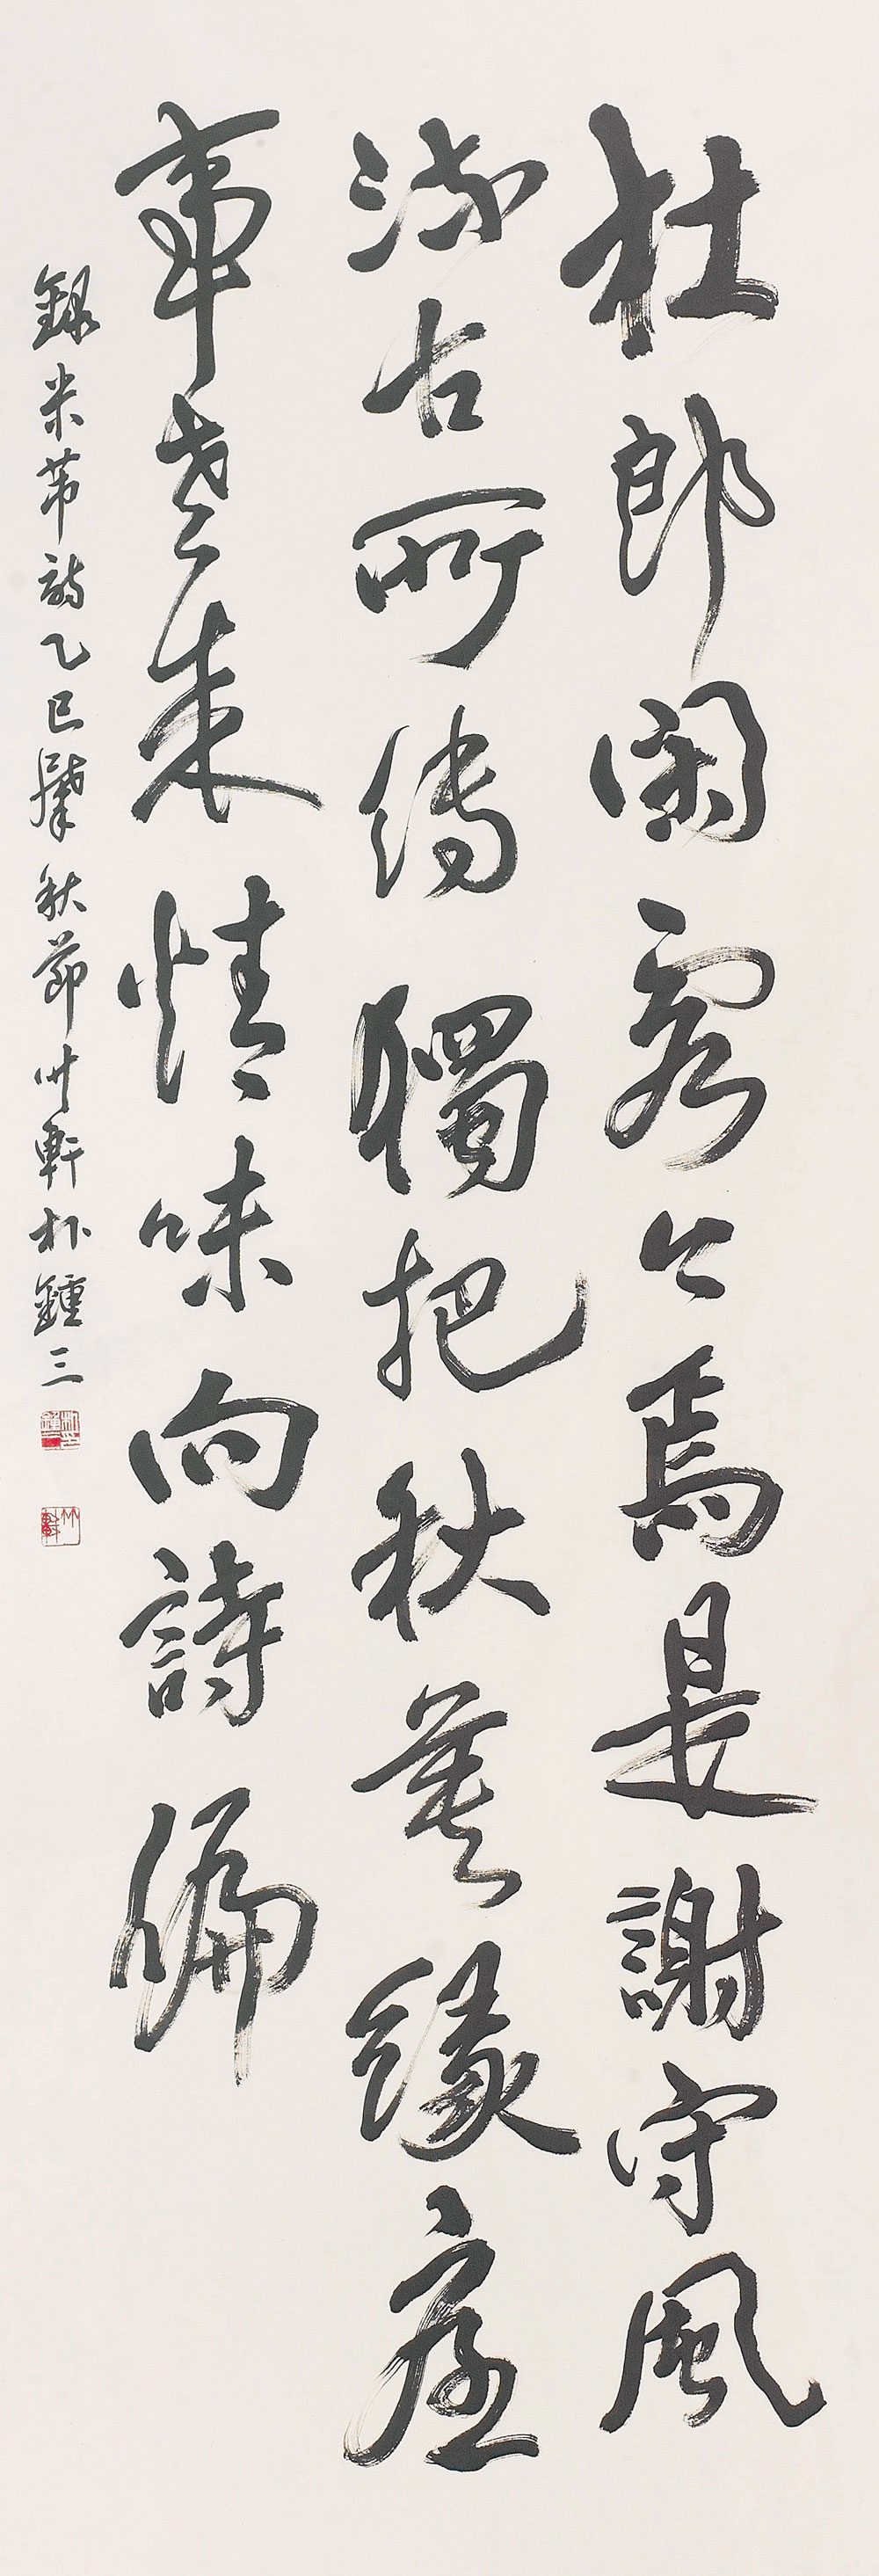 杜郎閑客今焉是謝守風
流古所傳獨把秋英緣底
事老來情味向詩偏
錄米芾詩乙巳肇秋節竹軒朴鍾三
竹軒